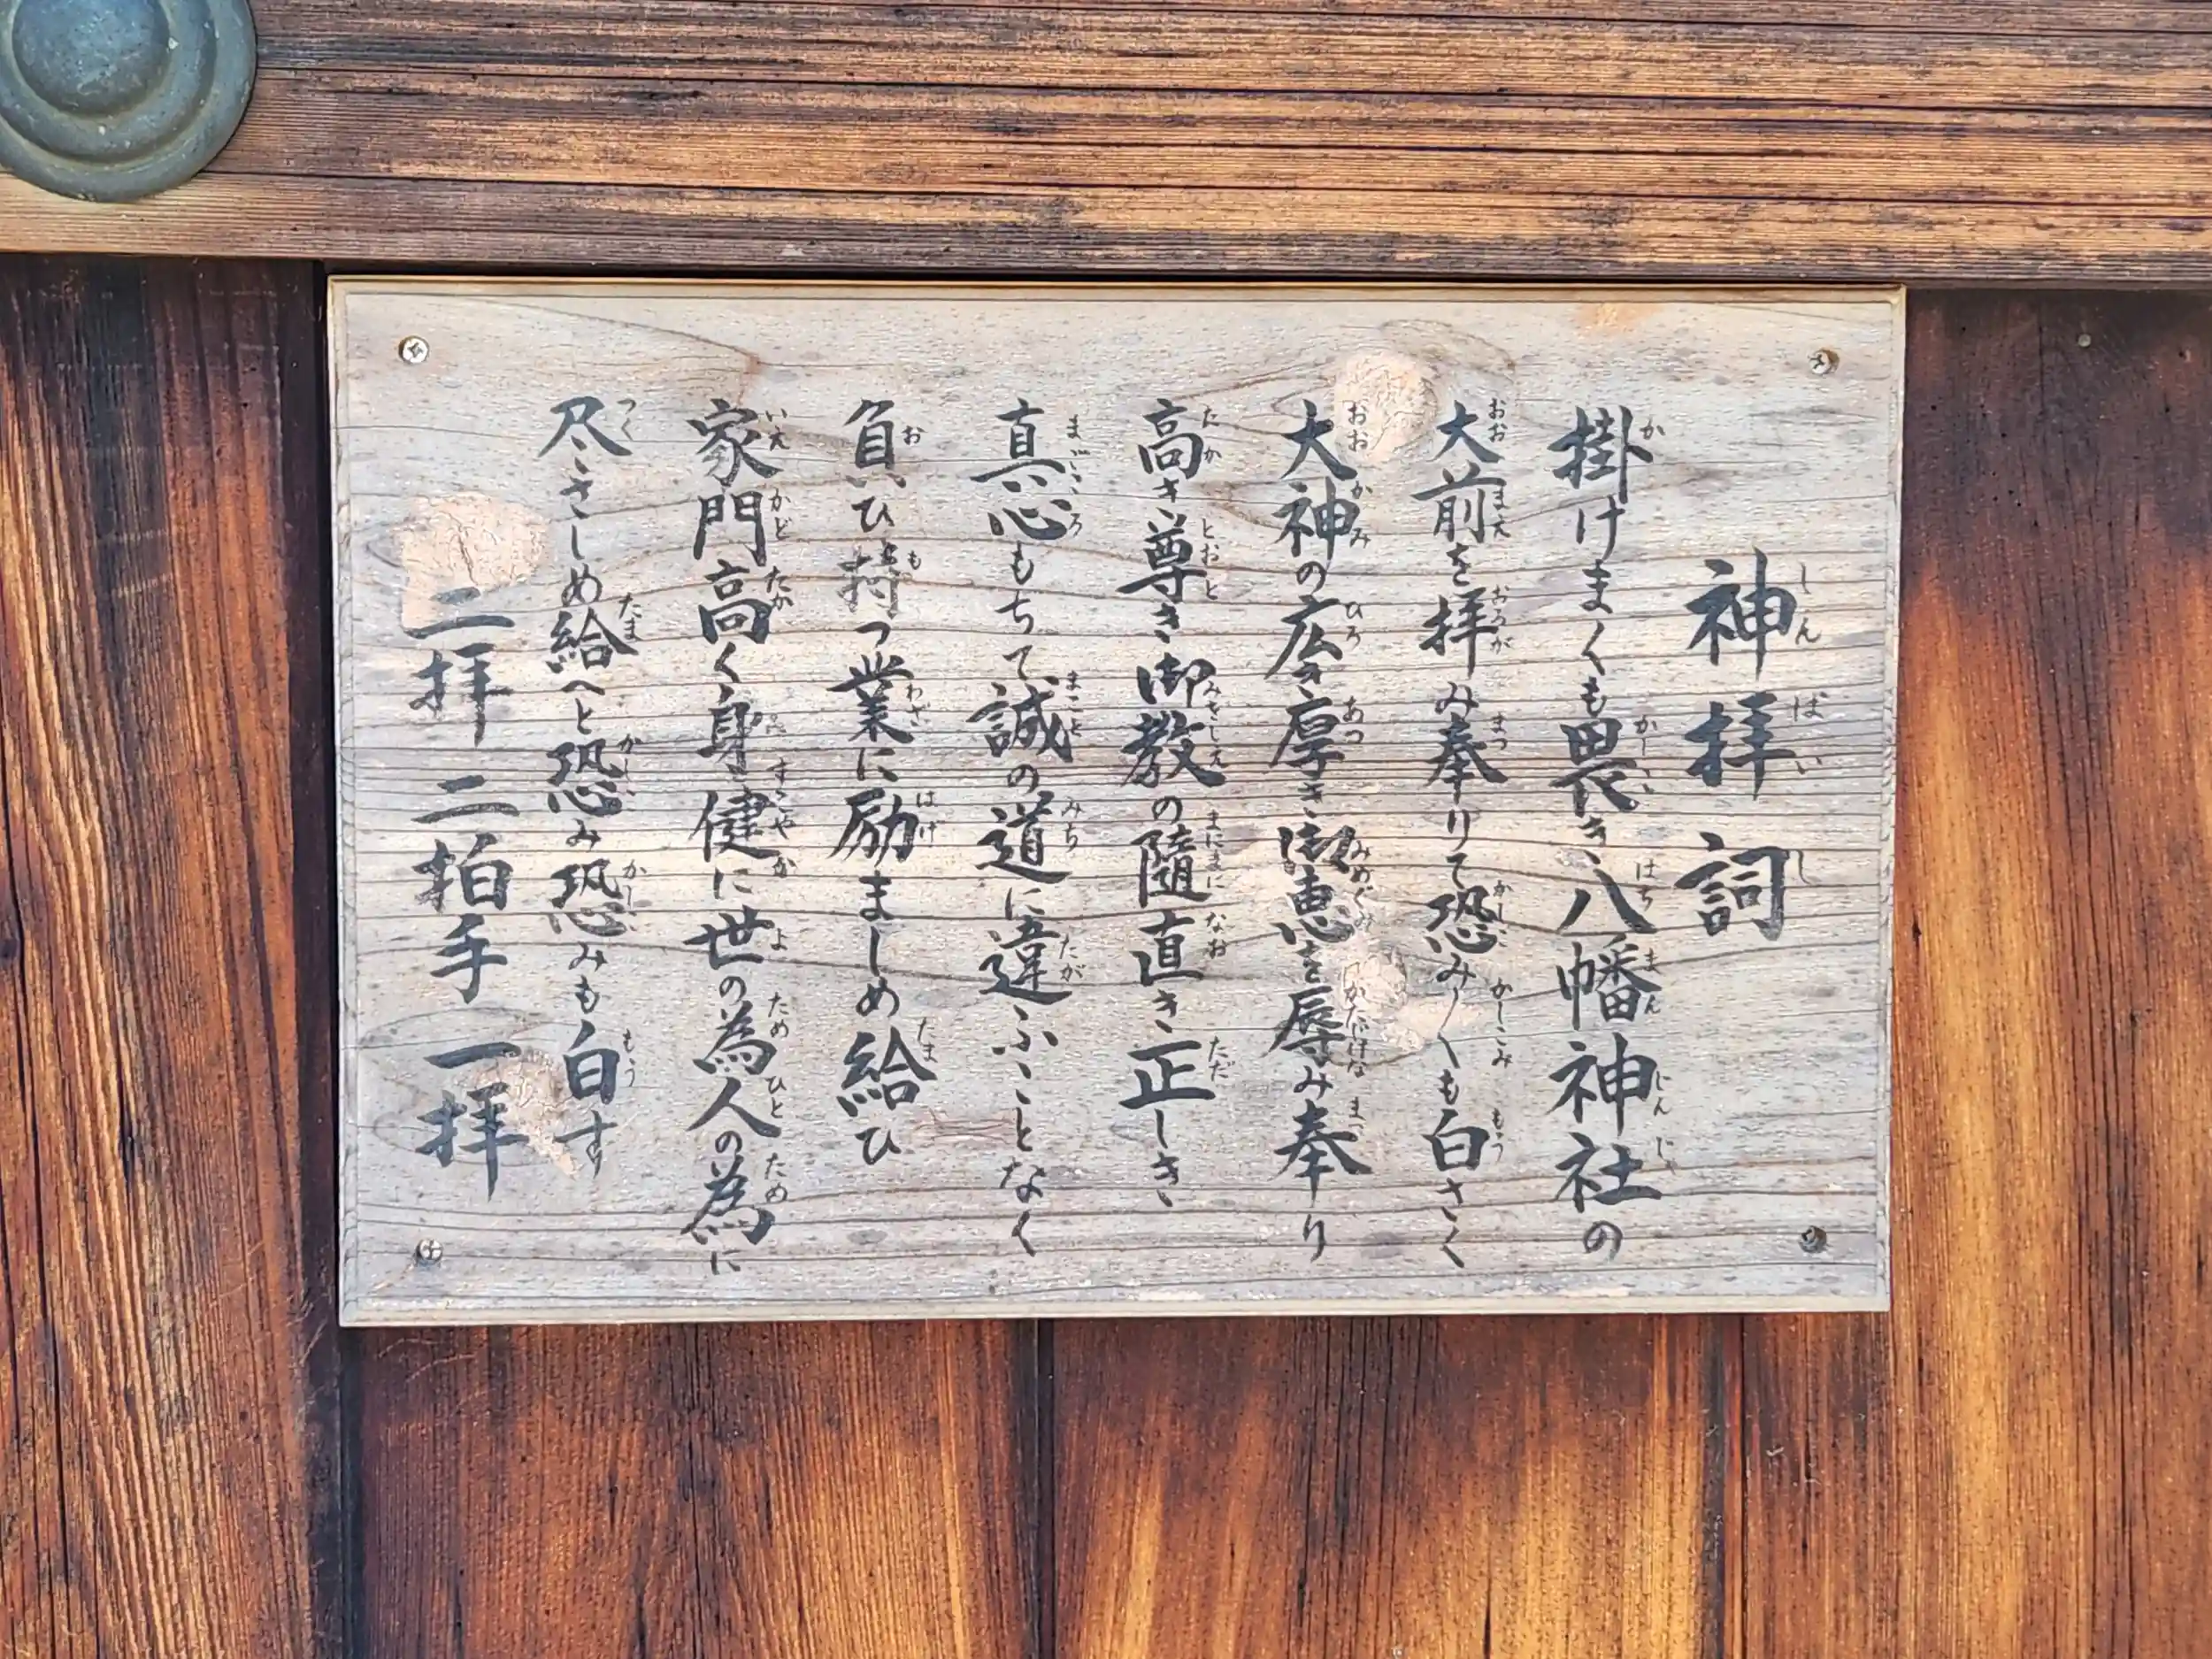 神拝詞
掛けまくも畏き八幡神社の
大前を拝み奉りて恐み〳〵も白さく
大神の広き厚き御恵を辱み奉り
高き尊き御教の随直き正しき
真心もちて誠の道に違ふことなく
負ひ持つ業に励ましめ給ひ
家門高く身健に世の為人の為に
尽さしめ給へと恐み恐みも白す
二拝 二拍手 一拝